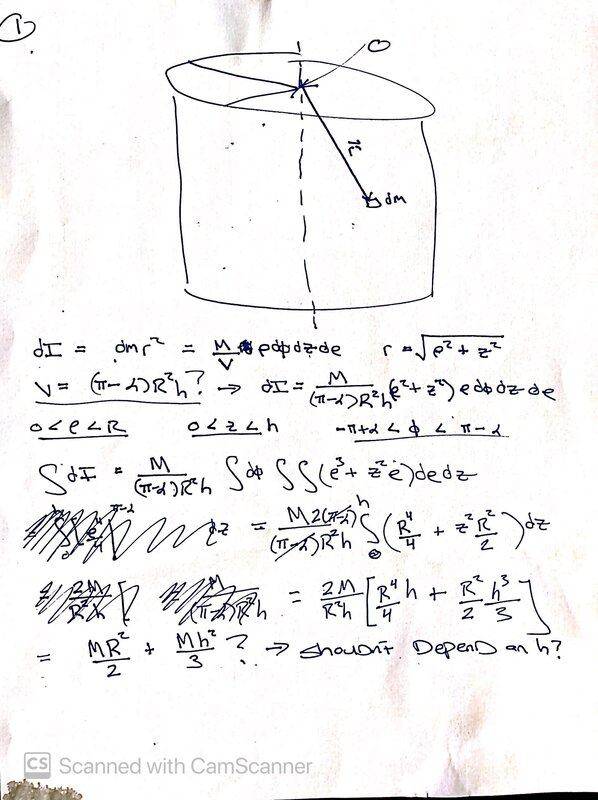 1
O
r⃗
dm
dI = dmr² = M/V ρdφdzdρ r = √(ρ² + z²)
V = (π-α)R²h? → dI = M/((π-α)R²h) (ρ²+z²) ρdφdzdρ
0<ρ<R 0<z<h -π+α < φ < π-α
∫dI = M/((π-α)R²h) ∫dφ ∫∫(ρ³ + z²ρ)dρdz
dz = M2(π-α)/((π-α)R²h) ∫₀ʰ (R⁴/4 + z²R²/2) dz
= 2M/(R²h) [R⁴/4 h + R²/2 h³/3]
= MR²/2 + Mh²/3 ? → shouldn't Depend on h?
CS Scanned with CamScanner